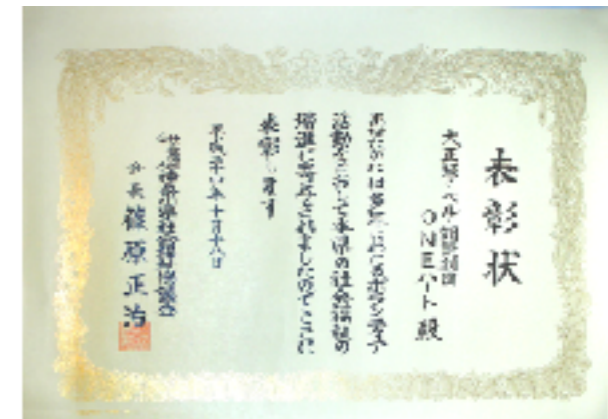 表彰状
大正琴アベル
ONEハート 殿
あなたには多年に亘るボランティア
活動をとおして本県の社会福祉の
増進に寄与されましたのでここに
表彰します
平成 年十月十八日
神奈川県社会福祉協議会
会長 篠原正治